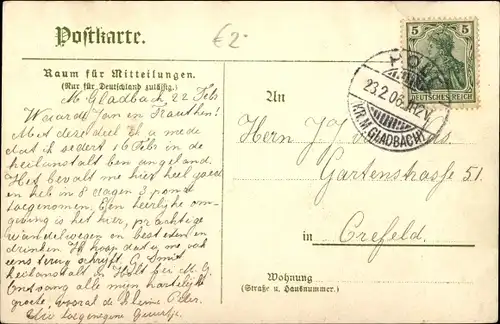 Postkarte.
€2-
Raum für Mitteilungen.
(Nur für Deutschland zulässig.)
M Gladbach, 22 Feb
Waarde Jan en Trauthen!
Met deze deel U mede
dat ik sedert 16 Febr in de
heilanstalt ben angeland.
Het bevalt me hier heel goed
en heb in 8 dagen 3 pond
toegenomen. Een heerlijke om-
geving is het hier, prachtige
wandelwegen en best eten en
drinken Ik hoop dat u me ook
eens terug schrijft. G. Smit
heilanstalt in Holt bei M. G.
Ontvang alle mijn hartelijke
groete, vooral de kleine Peter.
Uw toegenegene
5
DEUTSCHES REICH
HOLT
23.2.06. 11-12V.
(KR. M. GLADBACH)
An
Herrn J J
Gartenstrasse 51.
in Crefeld.
Wohnung
(Straße u. Hausnummer.)